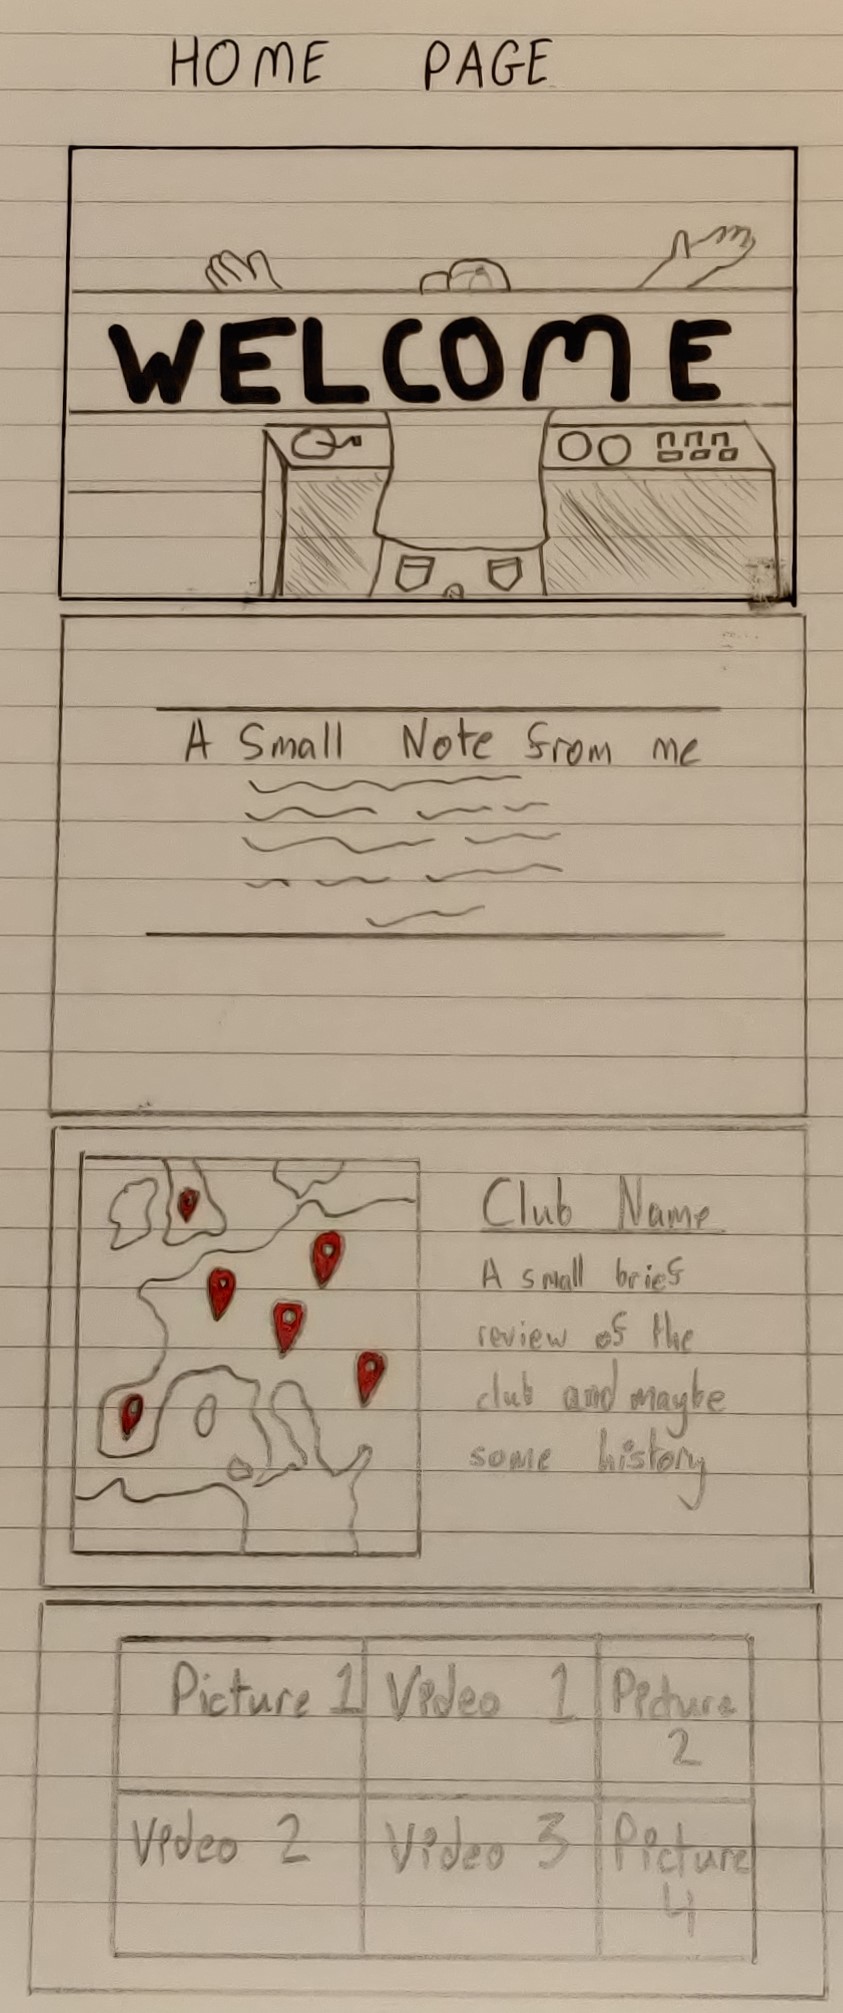 HOME PAGE
WELCOME
A Small Note from me
Club Name
A small brief
review of the
club and maybe
some history
Picture 1
Video 1
Picture
2
Video 2
Video 3
Picture
4